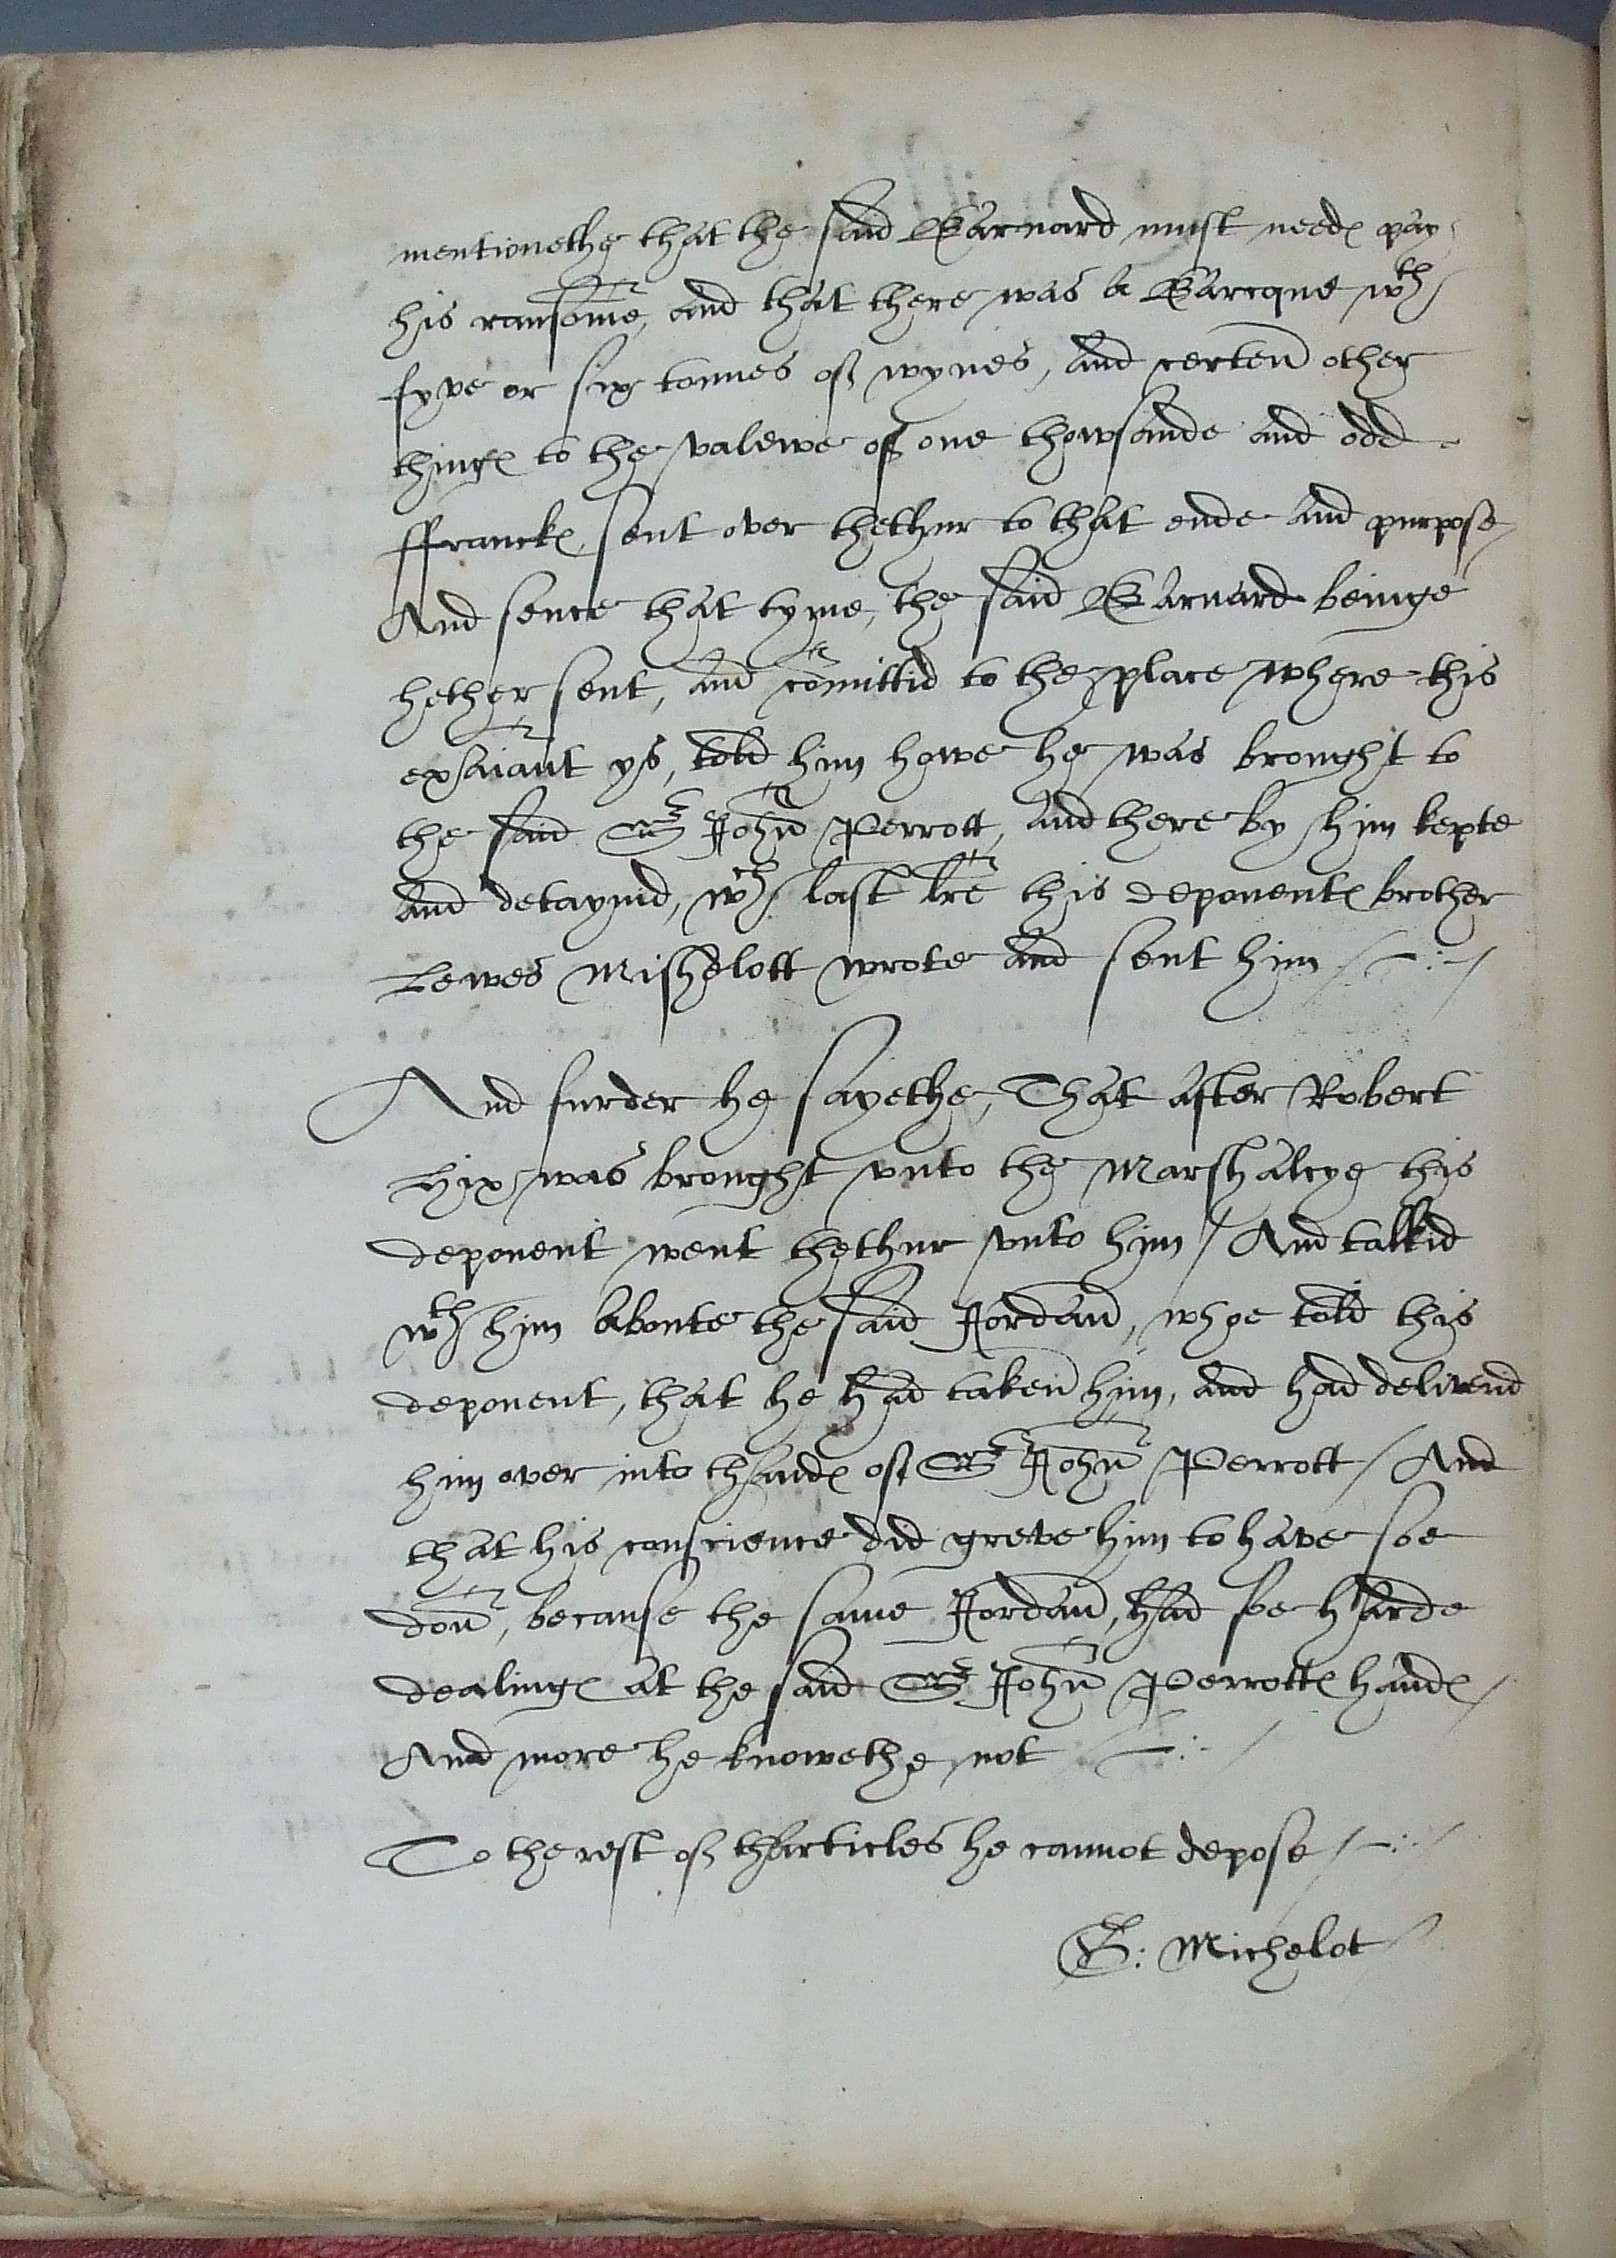 mentionethe that the said Barnard must needꝭ pay
his ransom̃e, and that there was a Barcque wth
fyve or six tonnes of wynes, and certen̄ other
thingꝭ to the valewe of one thowsande and odd
ffranckꝭ, sent over thethur to that ende and purpose
And sence that tyme, the said Barnard beinge
hether sent, and com̃ittid to the place where this
exãiant ys, told him howe he was brought to
the said Sr John̄ Perrott, and there by him kepte
and detaynid, wch last lr̃e this deponentꝭ brother
Lewes Mishelott wrote and sent him /-:-/
And furder he sayethe, That after Robert
Hix was brought vnto the Marshalcye this
deponent went thethur vnto him / And talkid
wth him aboute the said Jordan̄, whoe told this
deponent, that he had taken̄ him, and had deliverid
him over into thandꝭ of Sr John̄ Perrott / And
that his conscience did greve him to have soe
don̄, because the same Jordan̄, had soe harde
dealingꝭ at the said Sr John̄ Perrottꝭ handꝭ /
And more he knowethe not /-:-/
To the rest of tharticles he cannot depose /-:-/
G: Michelot